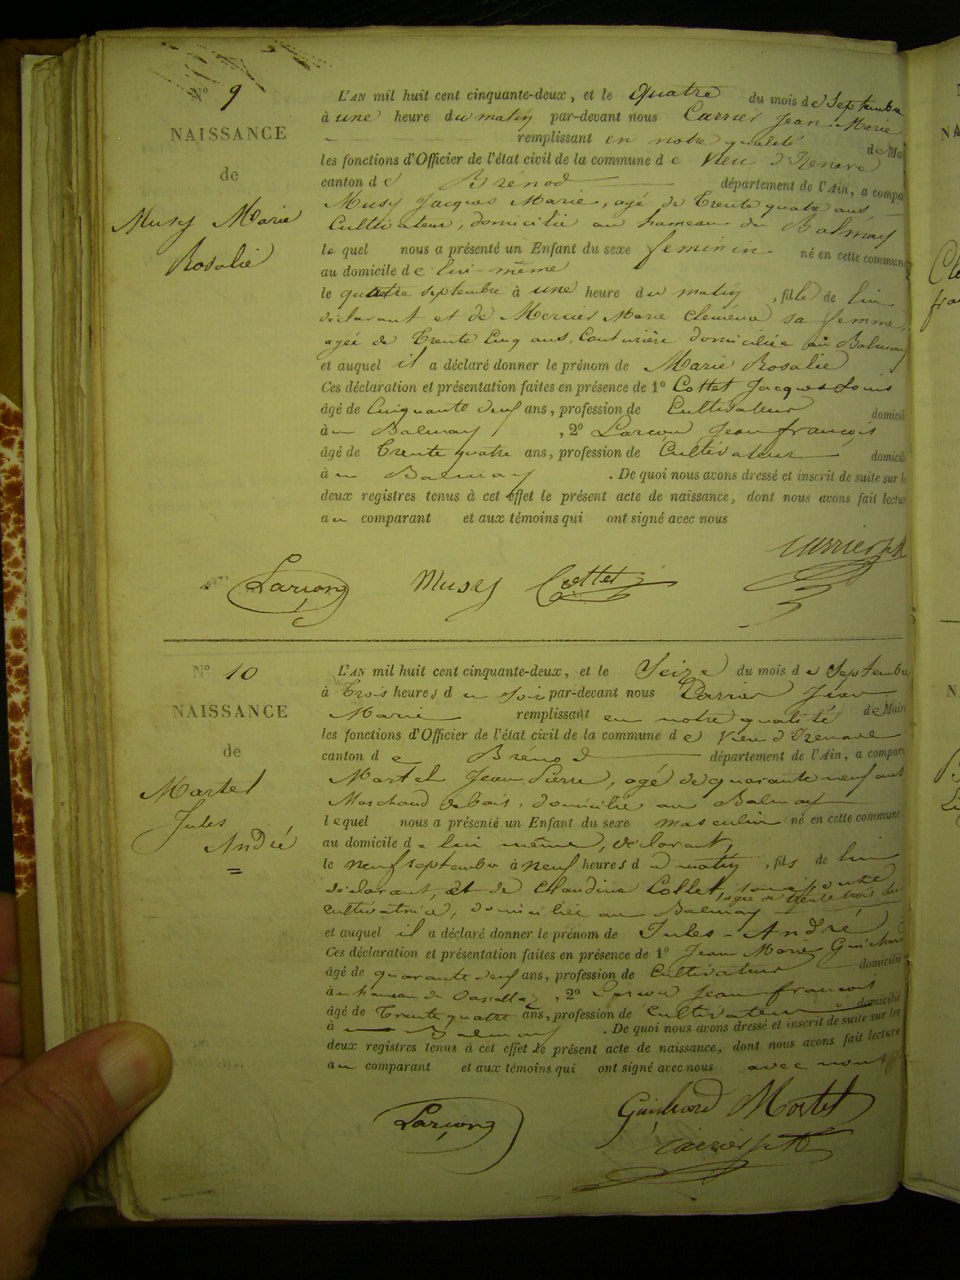 N° 9
NAISSANCE
de
Musy Marie
Rosalie
L'AN mil huit cent cinquante-deux, et le quatre du mois de Septembre
à une heure du matin par-devant nous Carrier Jean Marie
remplissant en notre qualité de Ma
les fonctions d'Officier de l'état civil de la commune de Vieu d'Izenave
canton de Brénod département de l'Ain, a compa
Musy Jacques Marie, agé de Trente quatre ans
Cultivateur, domicilié au hameau du Balmay
lequel nous a présenté un Enfant du sexe feminin né en cette commune
au domicile de lui-même
le quatre septembre à une heure du matin, fille de lui
déclarant et de Mercier Marie Clemence sa femme,
agée de Trente Cinq ans, Couturière domiciliée au Balmay
et auquel il a déclaré donner le prénom de Marie Rosalie
Ces déclaration et présentation faites en présence de 1° Cottet Jacques Louis
âgé de Cinquante neuf ans, profession de Cultivateur domicil
à Balmay, 2° Larçon Jean françois
âgé de Trente quatre ans, profession de Cultivateur domicil
au Balmay. De quoi nous avons dressé et inscrit de suite sur le
deux registres tenus à cet effet le présent acte de naissance, dont nous avons fait lectur
au comparant et aux témoins qui ont signé avec nous
Carrier J M
Larçon Musy Cottet
N° 10
NAISSANCE
de
Martel
Jules
André
L'AN mil huit cent cinquante-deux, et le Seize du mois de Septembre
à Trois heures du soir par-devant nous Carrier Jean
Marie remplissant en notre qualité de Maire
les fonctions d'Officier de l'état civil de la commune de Vieu d'Izenave
canton de Brénod département de l'Ain, a compar
Martel Jean Pierre, agé de quarante neuf ans
Marchand de bois, domicilié au Balmay
lequel nous a présenté un Enfant du sexe masculin né en cette commune
au domicile de lui même, déclarant,
le neuf septembre à neuf heures du matin, fils de lui
déclarant, et de Claudine Collet,
agée de trente trois ans
cultivatrice, domiciliée au Balmay
et auquel il a déclaré donner le prénom de Jules-André
Ces déclaration et présentation faites en présence de 1° Jean Marie Guichard
âgé de quarante neuf ans, profession de Cultivateur domicilié
au hameau de, 2° Larçon Jean françois
âgé de Trente quatre ans, profession de Cultivateur domicilié
à Balmay. De quoi nous avons dressé et inscrit de suite sur les
deux registres tenus à cet effet le présent acte de naissance, dont nous avons fait lecture
au comparant et aux témoins qui ont signé avec nous avec nous
Guichard Martel
Larçon
Carrier J M